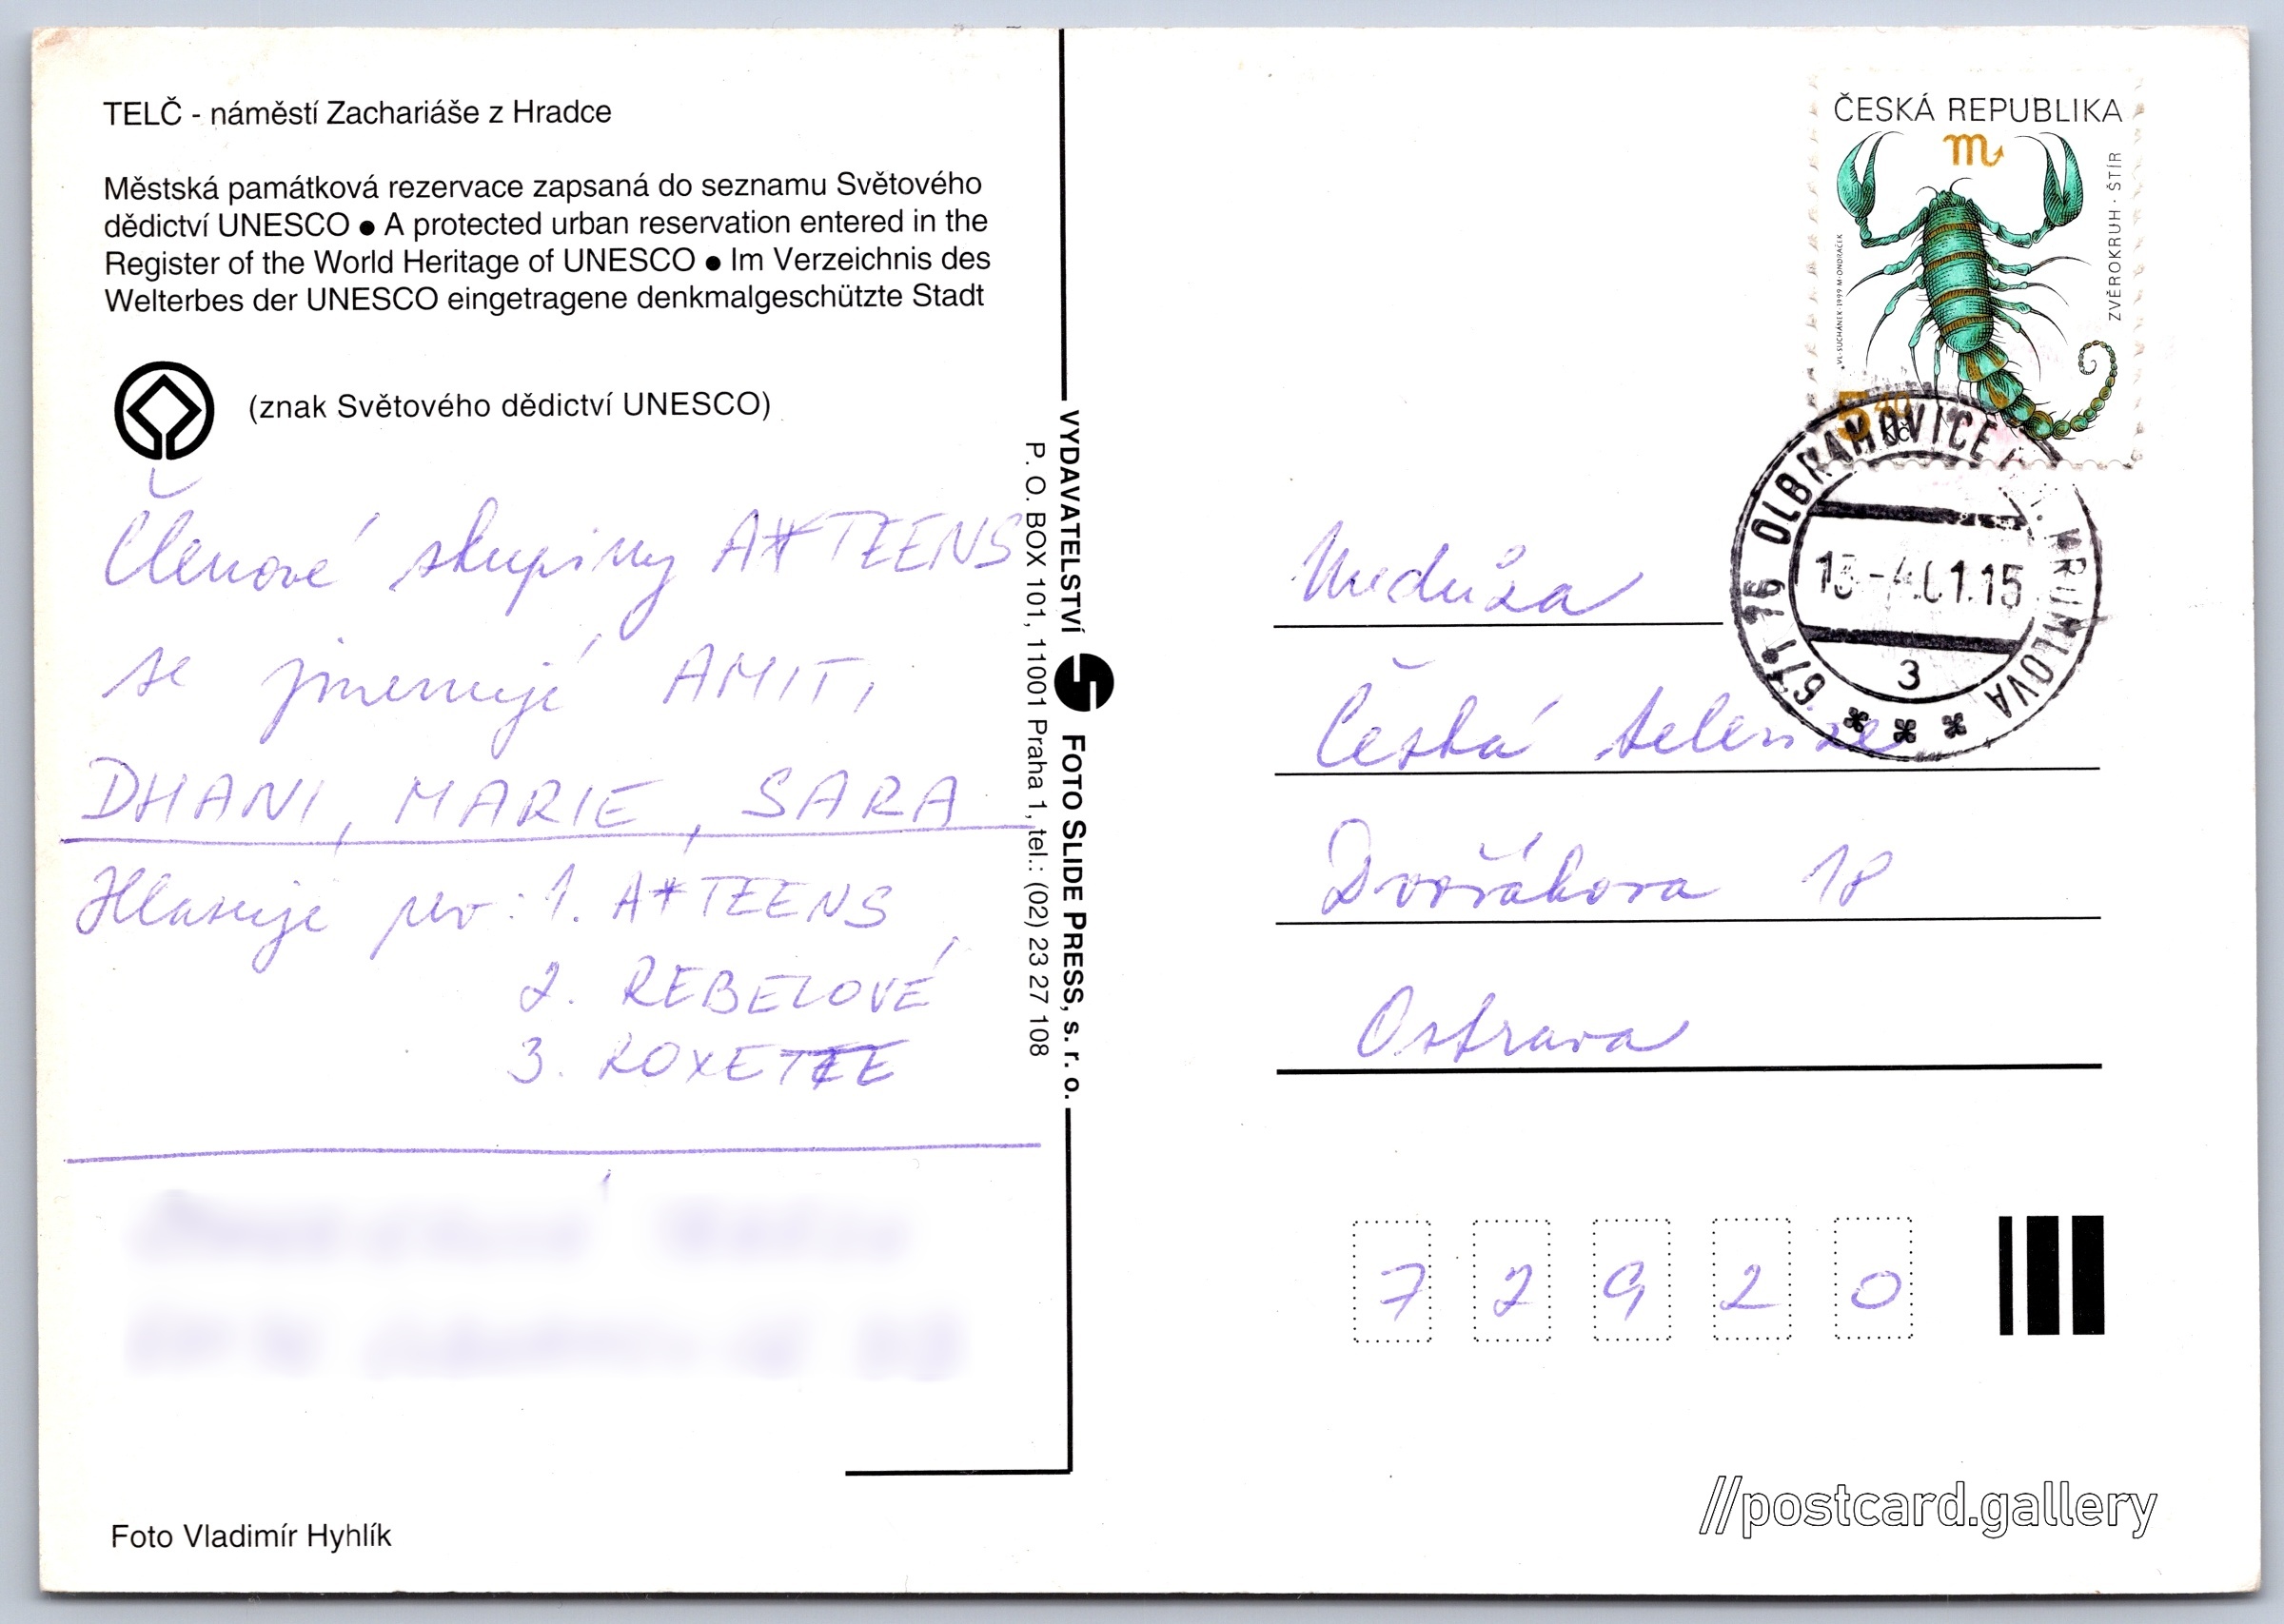 TELČ - náměstí Zachariáše z Hradce
Městská památková rezervace zapsaná do seznamu Světového
dědictví UNESCO ● A protected urban reservation entered in the
Register of the World Heritage of UNESCO ● Im Verzeichnis des
Welterbes der UNESCO eingetragene denkmalgeschützte Stadt
(znak Světového dědictví UNESCO)
Členové skupiny A*TEENS
se jmenují AMIT,
DHANI, MARIE, SARA
Hlasuji pro: 1. A*TEENS,
2. REBELOVÉ
3. ROXETTE
Foto Vladimír Hyhlík
VYDAVATELSTVÍ FOTO SLIDE PRESS, s. r. o.
P. O. BOX 101, 11001 Praha 1, tel.: (02) 23 27 108
ČESKÁ REPUBLIKA
ZVĚROKRUH · ŠTÍR
VL·SUCHÁNEK·1999 M·ONDRÁČEK
5 40
Kč
671 76 OLBRAMOVICE M. KRUMLOVA
13.-4.01.15
3
Medúza
Česká televize
Dvořákova 18
Ostrava
7 2 9 2 0
//postcard.gallery